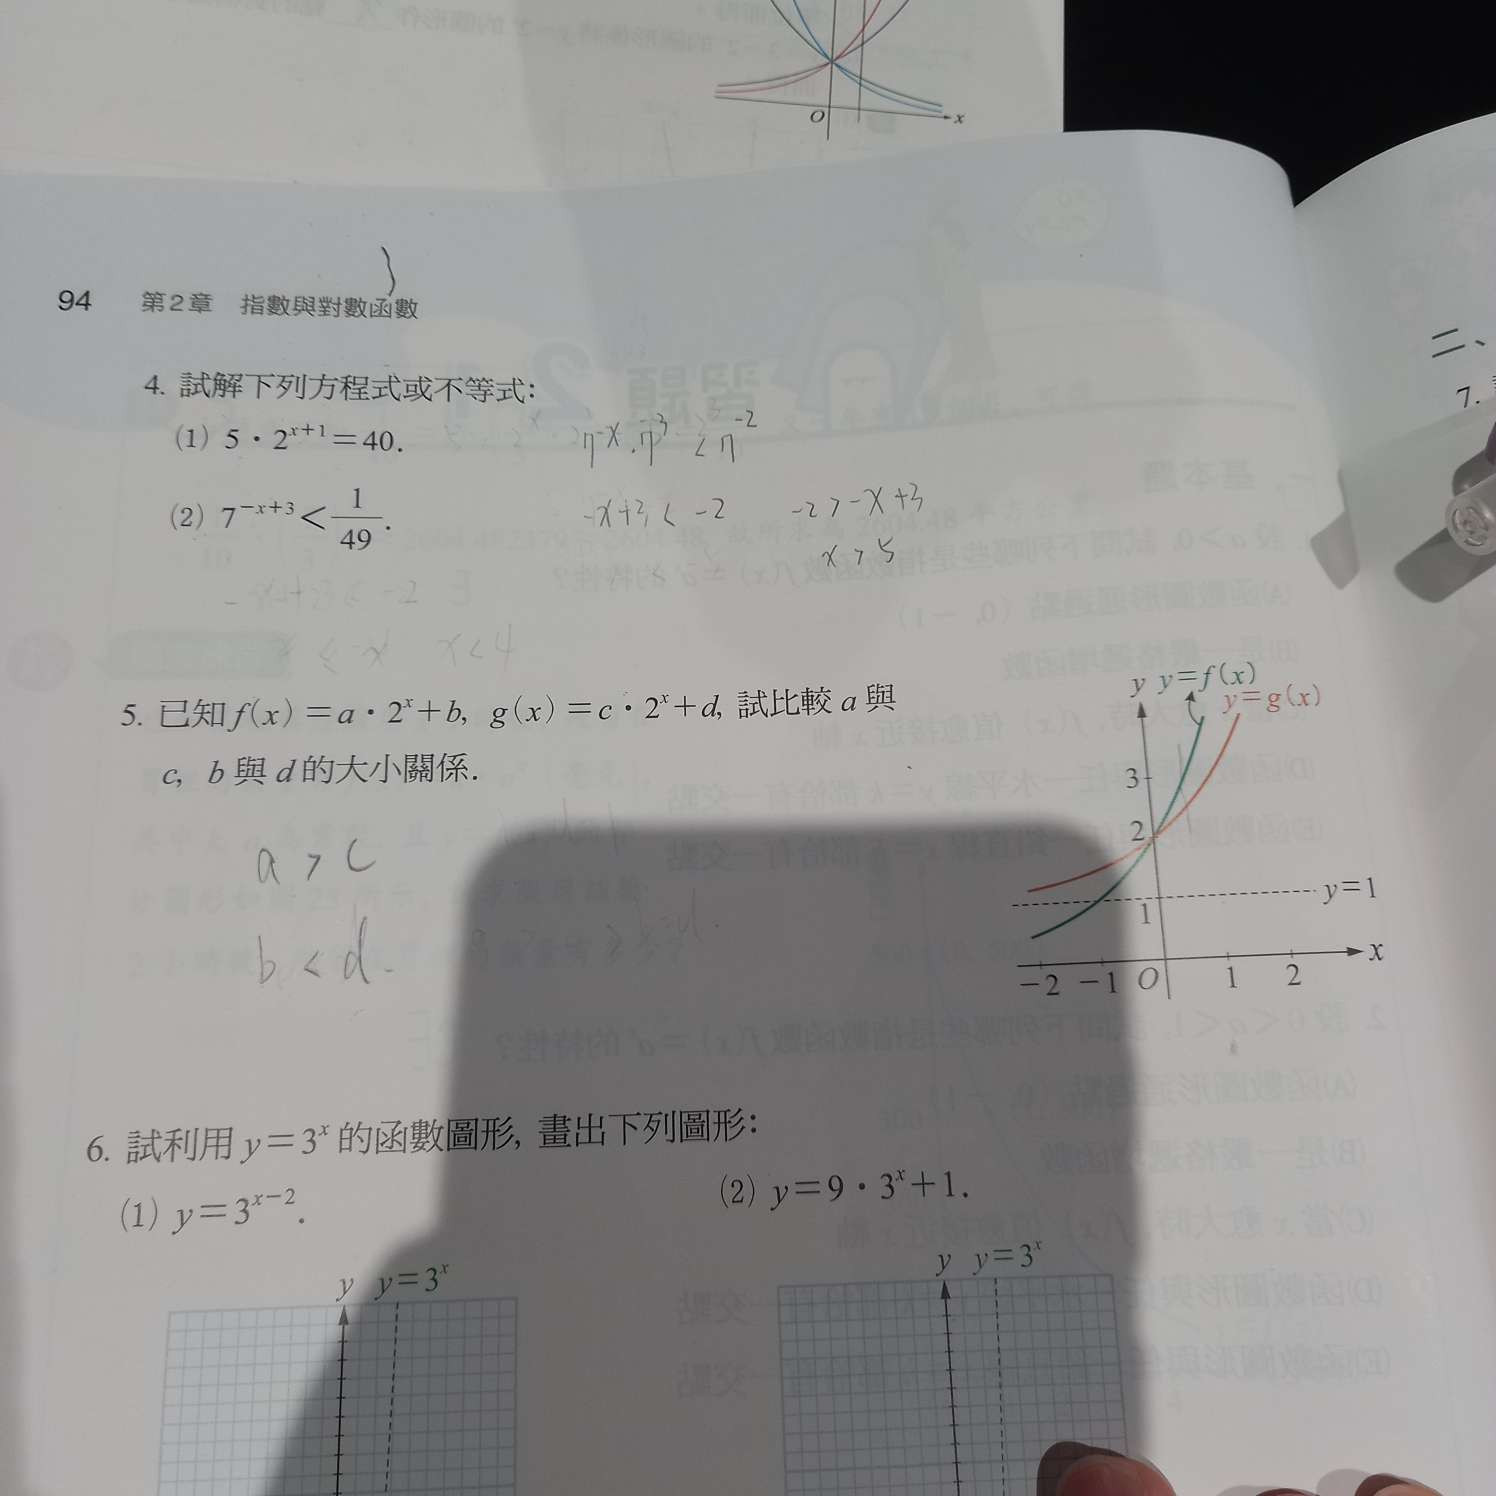 O x
94 第2章 指數與對數函數
二、
7.
4. 試解下列方程式或不等式：
(1) 5・2^{x+1}＝40.
7^{-x}・7^3 < 7^{-2}
(2) 7^{-x+3}＜1/49.
-x+3 < -2 -2 > -x+3
x > 5
-x+3 < -2
x < 4
5. 已知 f(x)＝a・2^x＋b, g(x)＝c・2^x＋d, 試比較 a 與
c, b 與 d 的大小關係.
a > c
b < d.
y y＝f(x)
y＝g(x)
3
2
y＝1
1
-2 -1 O 1 2 x
6. 試利用 y＝3^x 的函數圖形, 畫出下列圖形：
(1) y＝3^{x-2}.
(2) y＝9・3^x＋1.
y y＝3^x
y y＝3^x